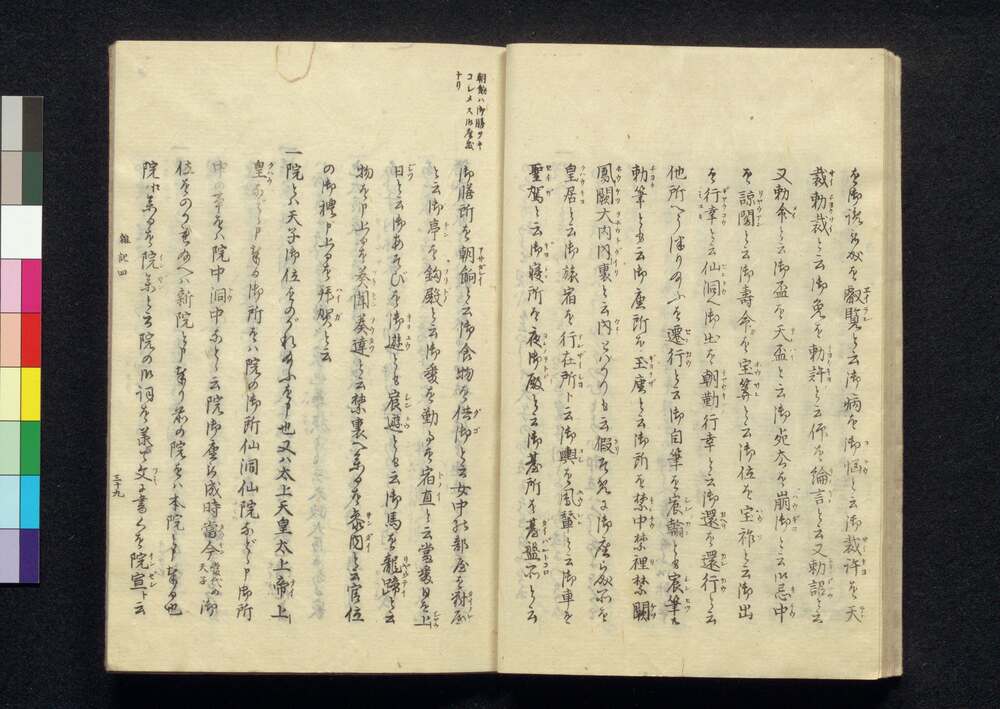 を御詠な政を叡覧と云御病を御悩と云御裁許を天
裁勅裁と云御免を勅許と云仰を綸言と云又勅詔と云
又勅命と云御盃を天盃と云御死去を崩御と云御忌中
を諒闇と云御寿命を宝算と云御位を宝祚と云御出
を行幸と云仙洞へ御出を朝覲行幸と云御還を還行と云
他所へうつりたまふを遷行と云御自筆を宸翰とも宸筆
勅筆とも云御座所を玉座と云御所を禁中禁裡禁闕
鳳闕大内内裏と云内とばかりも云假そめに御座る所を
皇居と云御旅宿を行在所ト云御輿を鳳輦と云御車を
聖駕と云御寝所を夜御殿と云御台所を台盤所と云
朝餉ハ御膳ヲキ
コレメス御座敷
ナリ
御膳所を朝餉と云御食物を供御と云女中の部屋を対屋
と云御亭を釣殿と云御番を勤るを宿直と云当番日を上
日と云御あそびを御遊とも宸遊とも云御馬を龍蹄と云
物を申上るを奏聞奏達と云禁裏へ参るを参内と云官位
の御禮申上るを拝賀と云
一院とハ天子御位をのがれたまふを申也又ハ太上天皇太上帝上
皇などゝ申なり御所をハ院の御所仙洞仙院などゝ申御所
中の事をハ院中洞中などゝ云院御座る成時當今当代の天子御
位をのりたまへハ新院と申なり前の院をハ本院と申なり也
院に参るを院参と云院の御詞を奉て文に書くを院宣ト云
雑記四
三十九